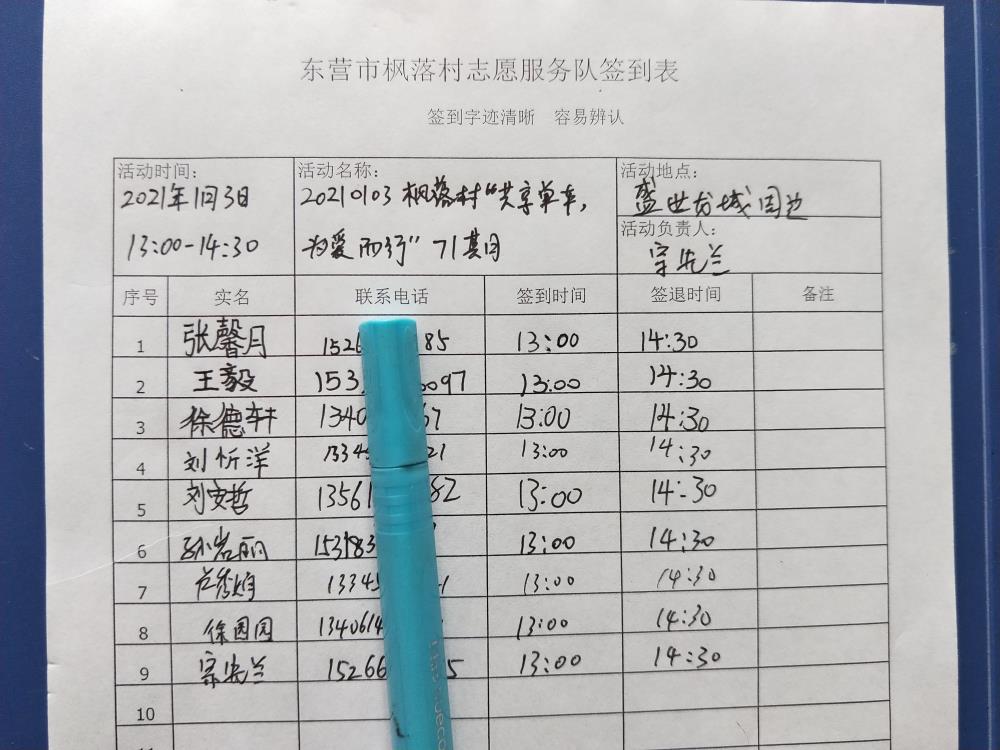 东营市枫落村志愿服务队签到表
签到字迹清晰 容易辨认
活动时间:
2021年1月3日
13:00-14:30
活动名称:
20210103 枫落村“共享单车,
为爱而行”71其月
活动地点:
盛世龙城周边
活动负责人:
宗先兰
序号 实名 联系电话 签到时间 签退时间 备注
1 张馨月 1526 85 13:00 14:30
2 王毅 153 0097 13:00 14:30
3 徐德轩 1340 67 13:00 14:30
4 刘忻洋 1334 21 13:00 14:30
5 刘安哲 13561 82 13:00 14:30
6 孙岩丽 153783 13:00 14:30
7 13345 13:00 14:30
8 徐园园 1340614 13:00 14:30
9 宗先兰 15266 5 13:00 14:30
10